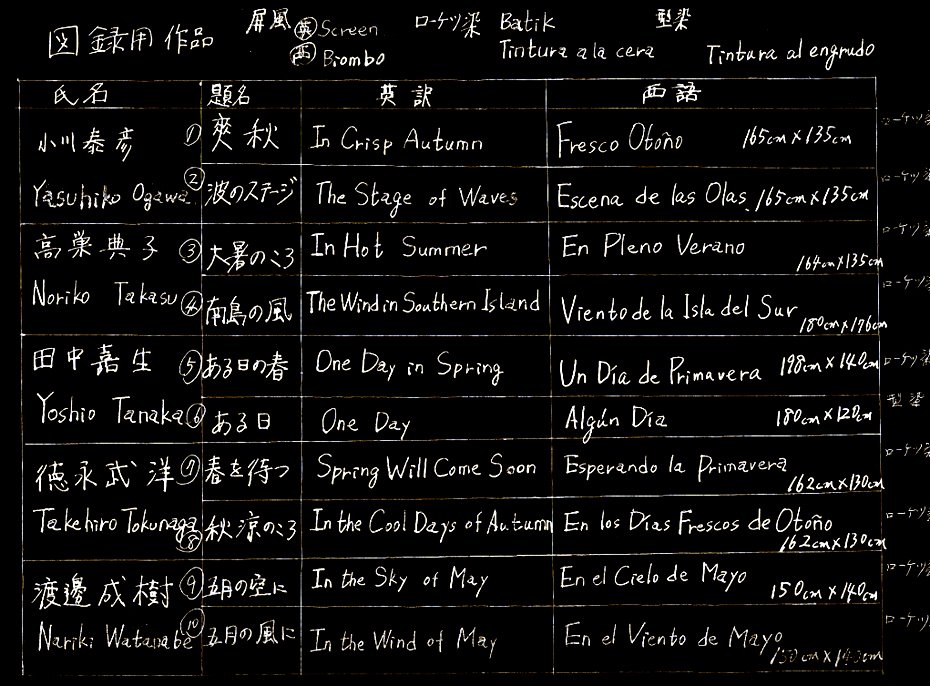 図録用作品
屏風 英 Screen
西 Biombo
ローケツ染 Batik
Tintura a la cera
型染
Tintura al engrudo
氏名 題名 英訳 西語
小川泰彦 ① 爽秋 In Crisp Autumn Fresco Otoño 165cm×135cm ローケツ染
Yasuhiko Ogawa ② 波のステージ The Stage of Waves Escena de las Olas 165cm×135cm ローケツ染
高巣典子 ③ 大暑のころ In Hot Summer En Pleno Verano 164cm×135cm ローケツ染
Noriko Takasu ④ 南島の風 The Wind in Southern Island Viento de la Isla del Sur 180cm×176cm ローケツ染
田中嘉生 ⑤ ある日の春 One Day in Spring Un Día de Primavera 198cm×140cm ローケツ染
Yoshio Tanaka ⑥ ある日 One Day Algún Día 180cm×120cm 型染
徳永武洋 ⑦ 春を待つ Spring Will Come Soon Esperando la Primavera 162cm×130cm ローケツ染
Takehiro Tokunaga ⑧ 秋涼のころ In the Cool Days of Autumn En los Días Frescos de Otoño 162cm×130cm ローケツ染
渡邊成樹 ⑨ 五月の空に In the Sky of May En el Cielo de Mayo 150cm×140cm ローケツ染
Nariki Watanabe ⑩ 五月の風に In the Wind of May En el Viento de Mayo ローケツ染